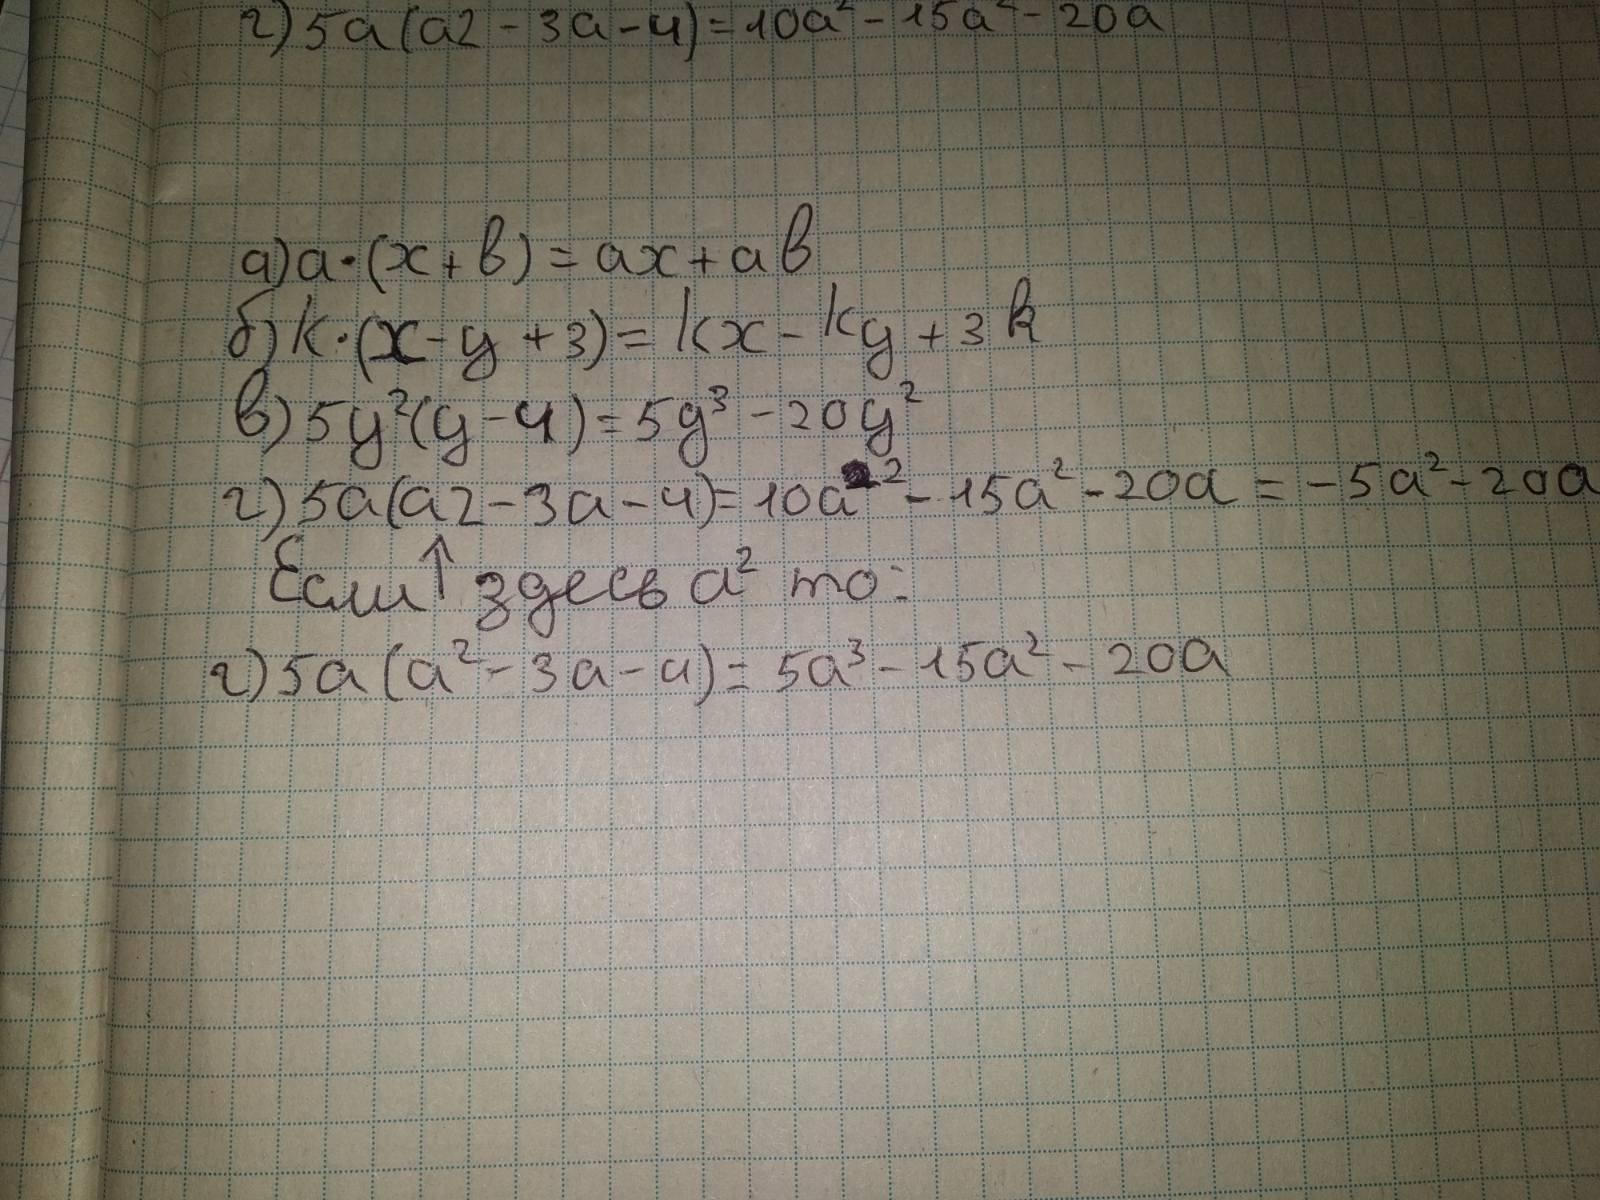 г) 5a(a2 - 3a - 4) = 10a² - 15a² - 20a
а) a·(x + в) = ax + aв
б) k·(x - y + 3) = kx - ky + 3k
в) 5y²(y - 4) = 5y³ - 20y²
г) 5a(a2 - 3a - 4) = 10a² - 15a² - 20a = -5a² - 20a
Если ↑ здесь a² то:
г) 5a(a² - 3a - 4) = 5a³ - 15a² - 20a